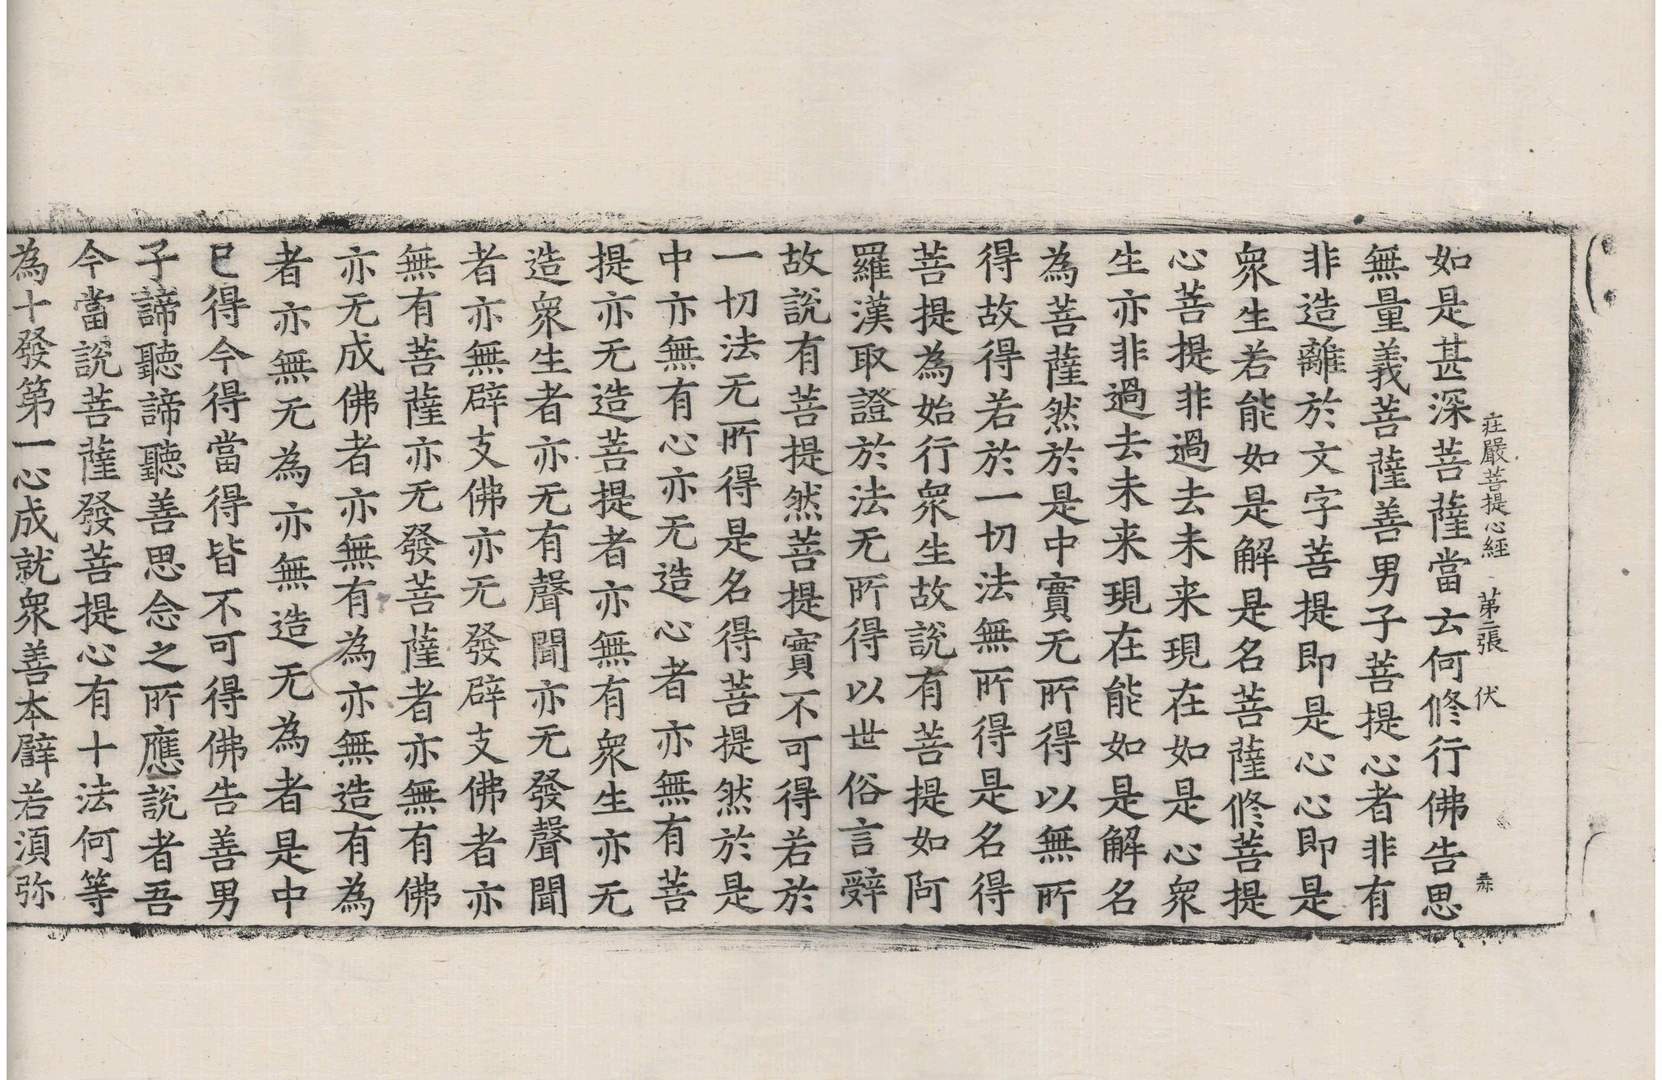 庄嚴菩提心經 第二張 伏
如是甚深菩薩當云何修行佛告思
無量義菩薩善男子菩提心者非有
非造離於文字菩提即是心心即是
衆生若能如是解是名菩薩修菩提
心菩提非過去未来現在如是心衆
生亦非過去未来現在能如是解名
為菩薩然於是中實无所得以無所
得故得若於一切法無所得是名得
菩提為始行衆生故說有菩提如阿
羅漢取證於法无所得以世俗言辝
故說有菩提然菩提實不可得若於
一切法无所得是名得菩提然於是
中亦無有心亦无造心者亦無有菩
提亦无造菩提者亦無有衆生亦无
造衆生者亦无有聲聞亦无發聲聞
者亦無辟支佛亦无發辟支佛者亦
無有菩薩亦无發菩薩者亦無有佛
亦无成佛者亦無有為亦無造有為
者亦無无為亦無造无為者是中
已得今得當得皆不可得佛告善男
子諦聽諦聽善思念之所應說者吾
今當說菩薩發菩提心有十法何等
為十發第一心成就衆善本譬若湏弥